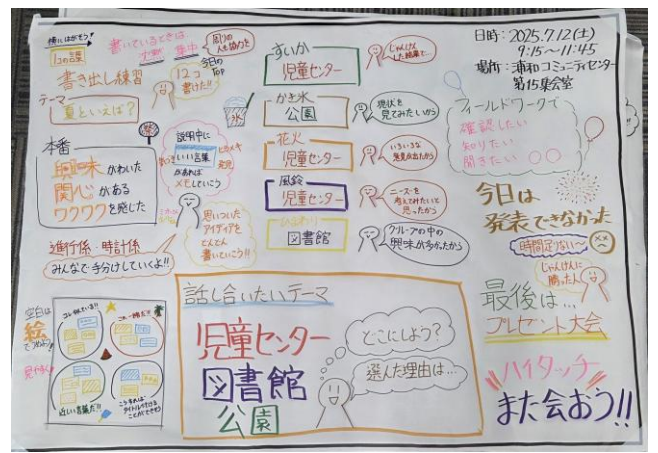 横にはがそう!
1コの課
書き出し練習
テーマ
夏といえば?
書いているときは
集中
周りの
人も協力を
今日の
Top
12コ
書けた!!
本番
興味がわいた
関心がある
ワクワクを発した
説明中に
いい言葉
があれば
メモしていこう
進行係・時計係
みんなで手分けしていくよ!!
思いついた
アイディアを
どんどん
書いていこう!!
空白は
絵
でうめよう!
近しい言葉だ!!
すいか
児童センター
じゃんけん
した結果で…
氷
かき氷
公園
現状を
見てみたいから
花火
児童センター
いろいろな
意見が出たから
風鈴
児童センター
ニーズを
考えてみたいと
思ったから
ひまわり
図書館
グループの中の
興味が多かったから
話し合いたいテーマ
児童センター
図書館
公園
どこにしよう?
選んだ理由は…
日時:2025.7.12(土)
9:15～11:45
場所:浦和コミュニティセンター
第15集会室
フィールドワークで
確認したい
知りたい
聞きたい 〇〇
今日は
発表できなかった
時間足りない～
じゃんけんに
勝った人
最後は…
プレゼント大会
ハイタッチ
また会おう!!